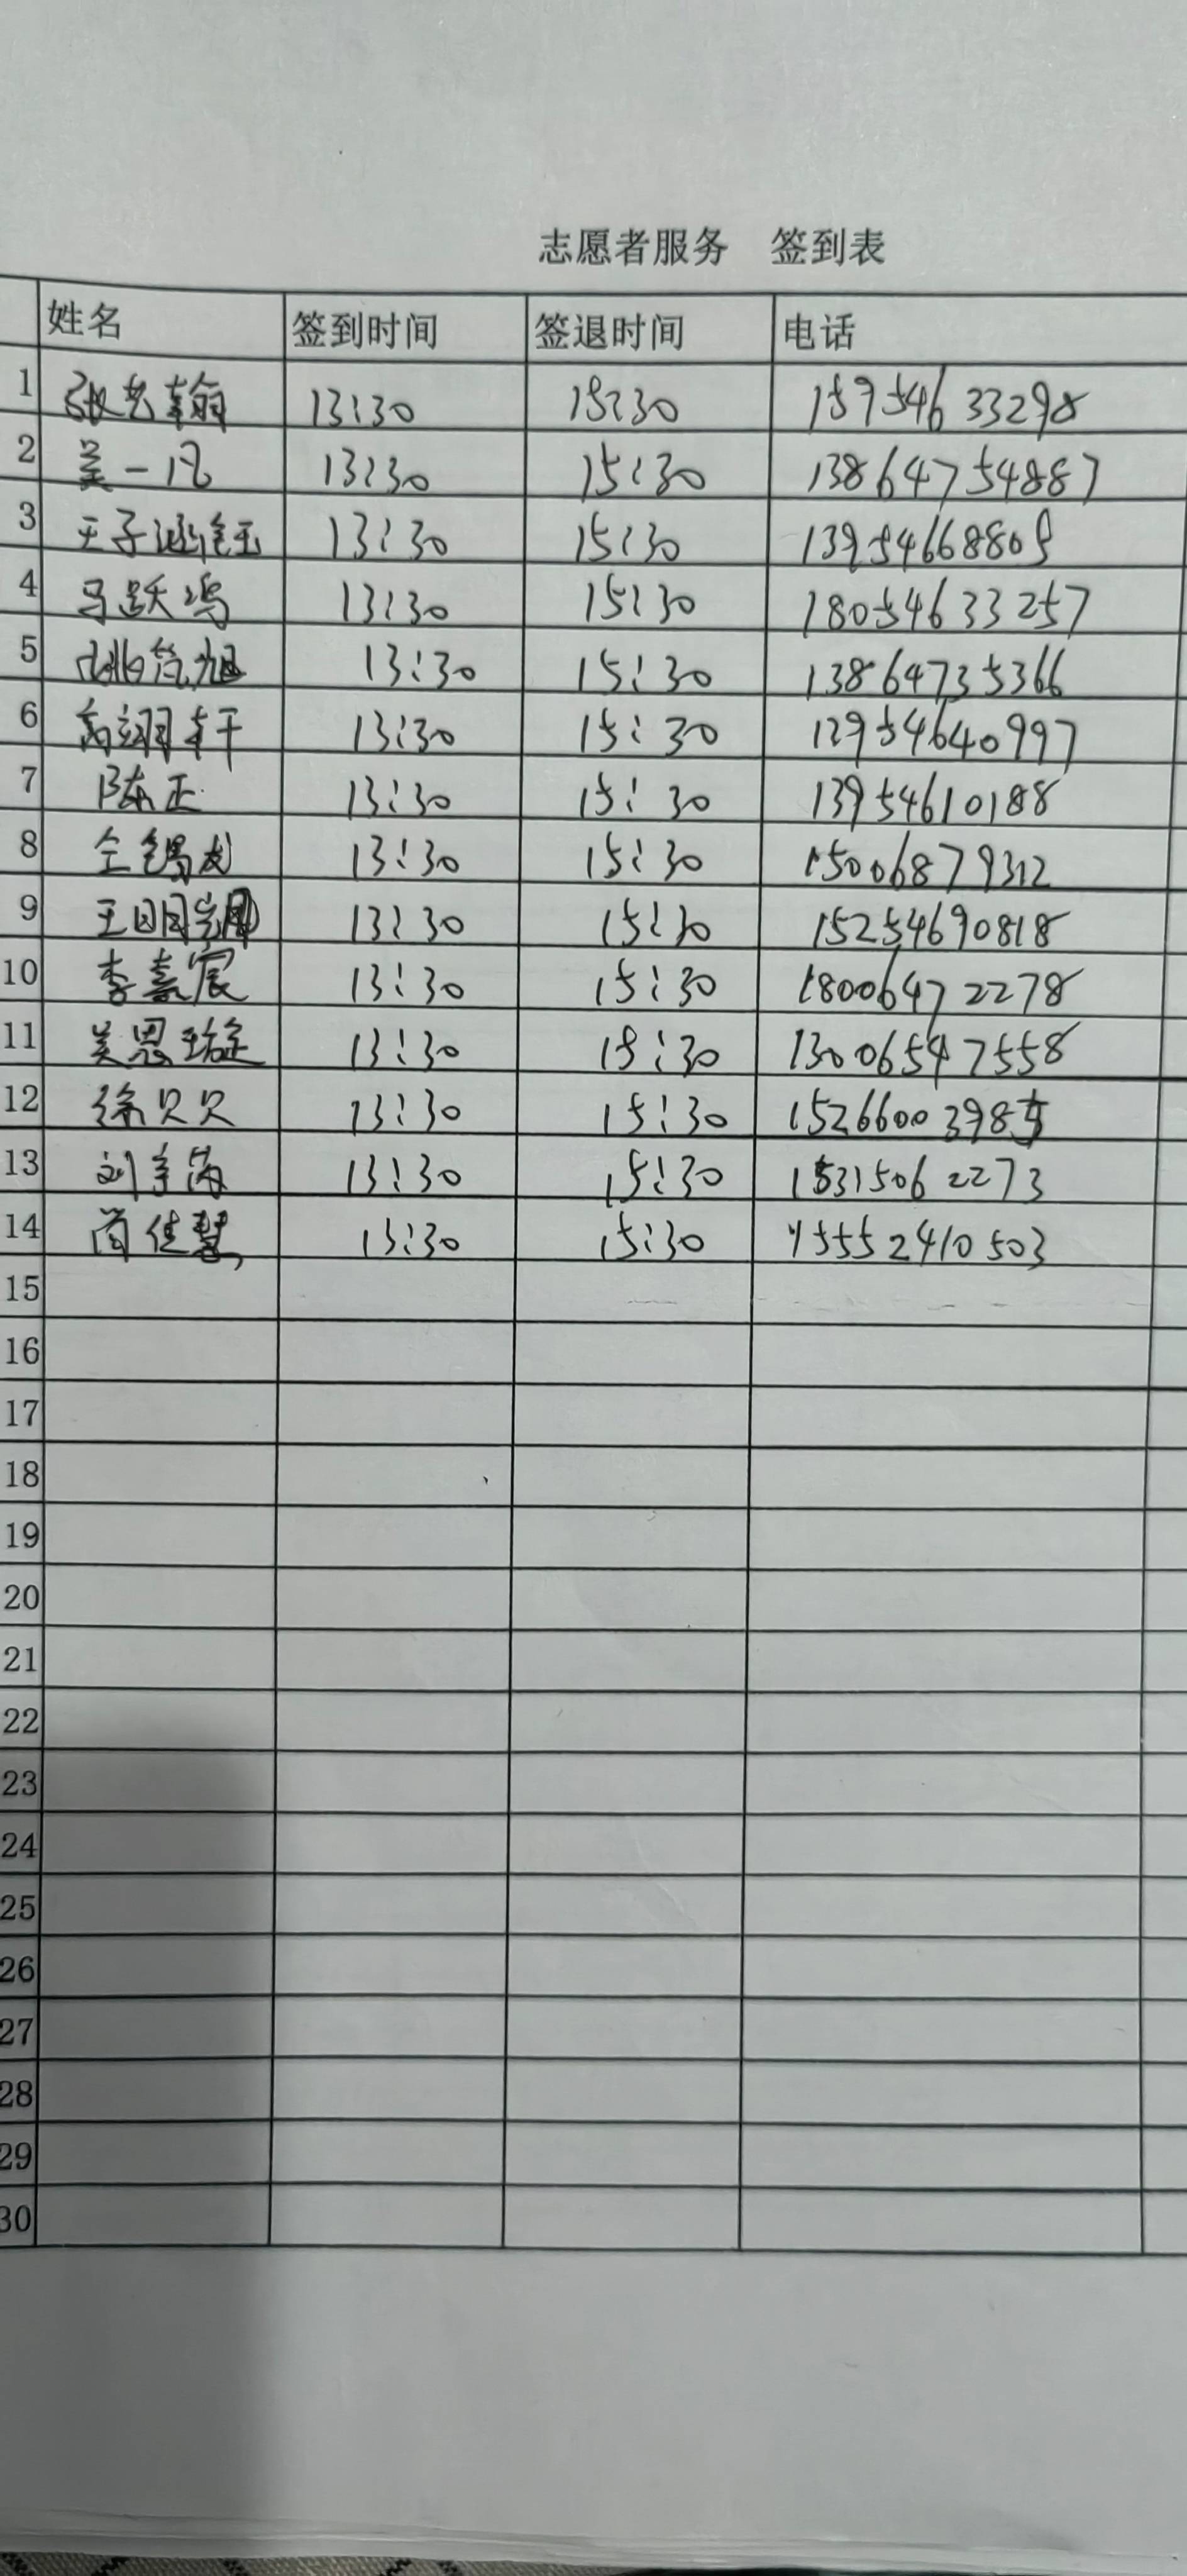 志愿者服务 签到表
姓名 签到时间 签退时间 电话
1 13:30 15:30 15954633298
2 一凡 13:30 15:30 13864754887
3 王子涵 13:30 15:30 13954668805
4 马跃鸣 13:30 15:30 18054633257
5 13:30 15:30 13864735366
6 高翊轩 13:30 15:30 12954640997
7 陈正 13:30 15:30 13954610188
8 13:30 15:30 15006879312
9 王 13:30 15:30 15254690818
10 李嘉宸 13:30 15:30 18006472278
11 13:30 15:30 13006547558
12 徐贝贝 13:30 15:30 15266003985
13 刘 13:30 15:30 15315062273
14 尚佳慧 13:30 15:30 15552410503
15
16
17
18
19
20
21
22
23
24
25
26
27
28
29
30